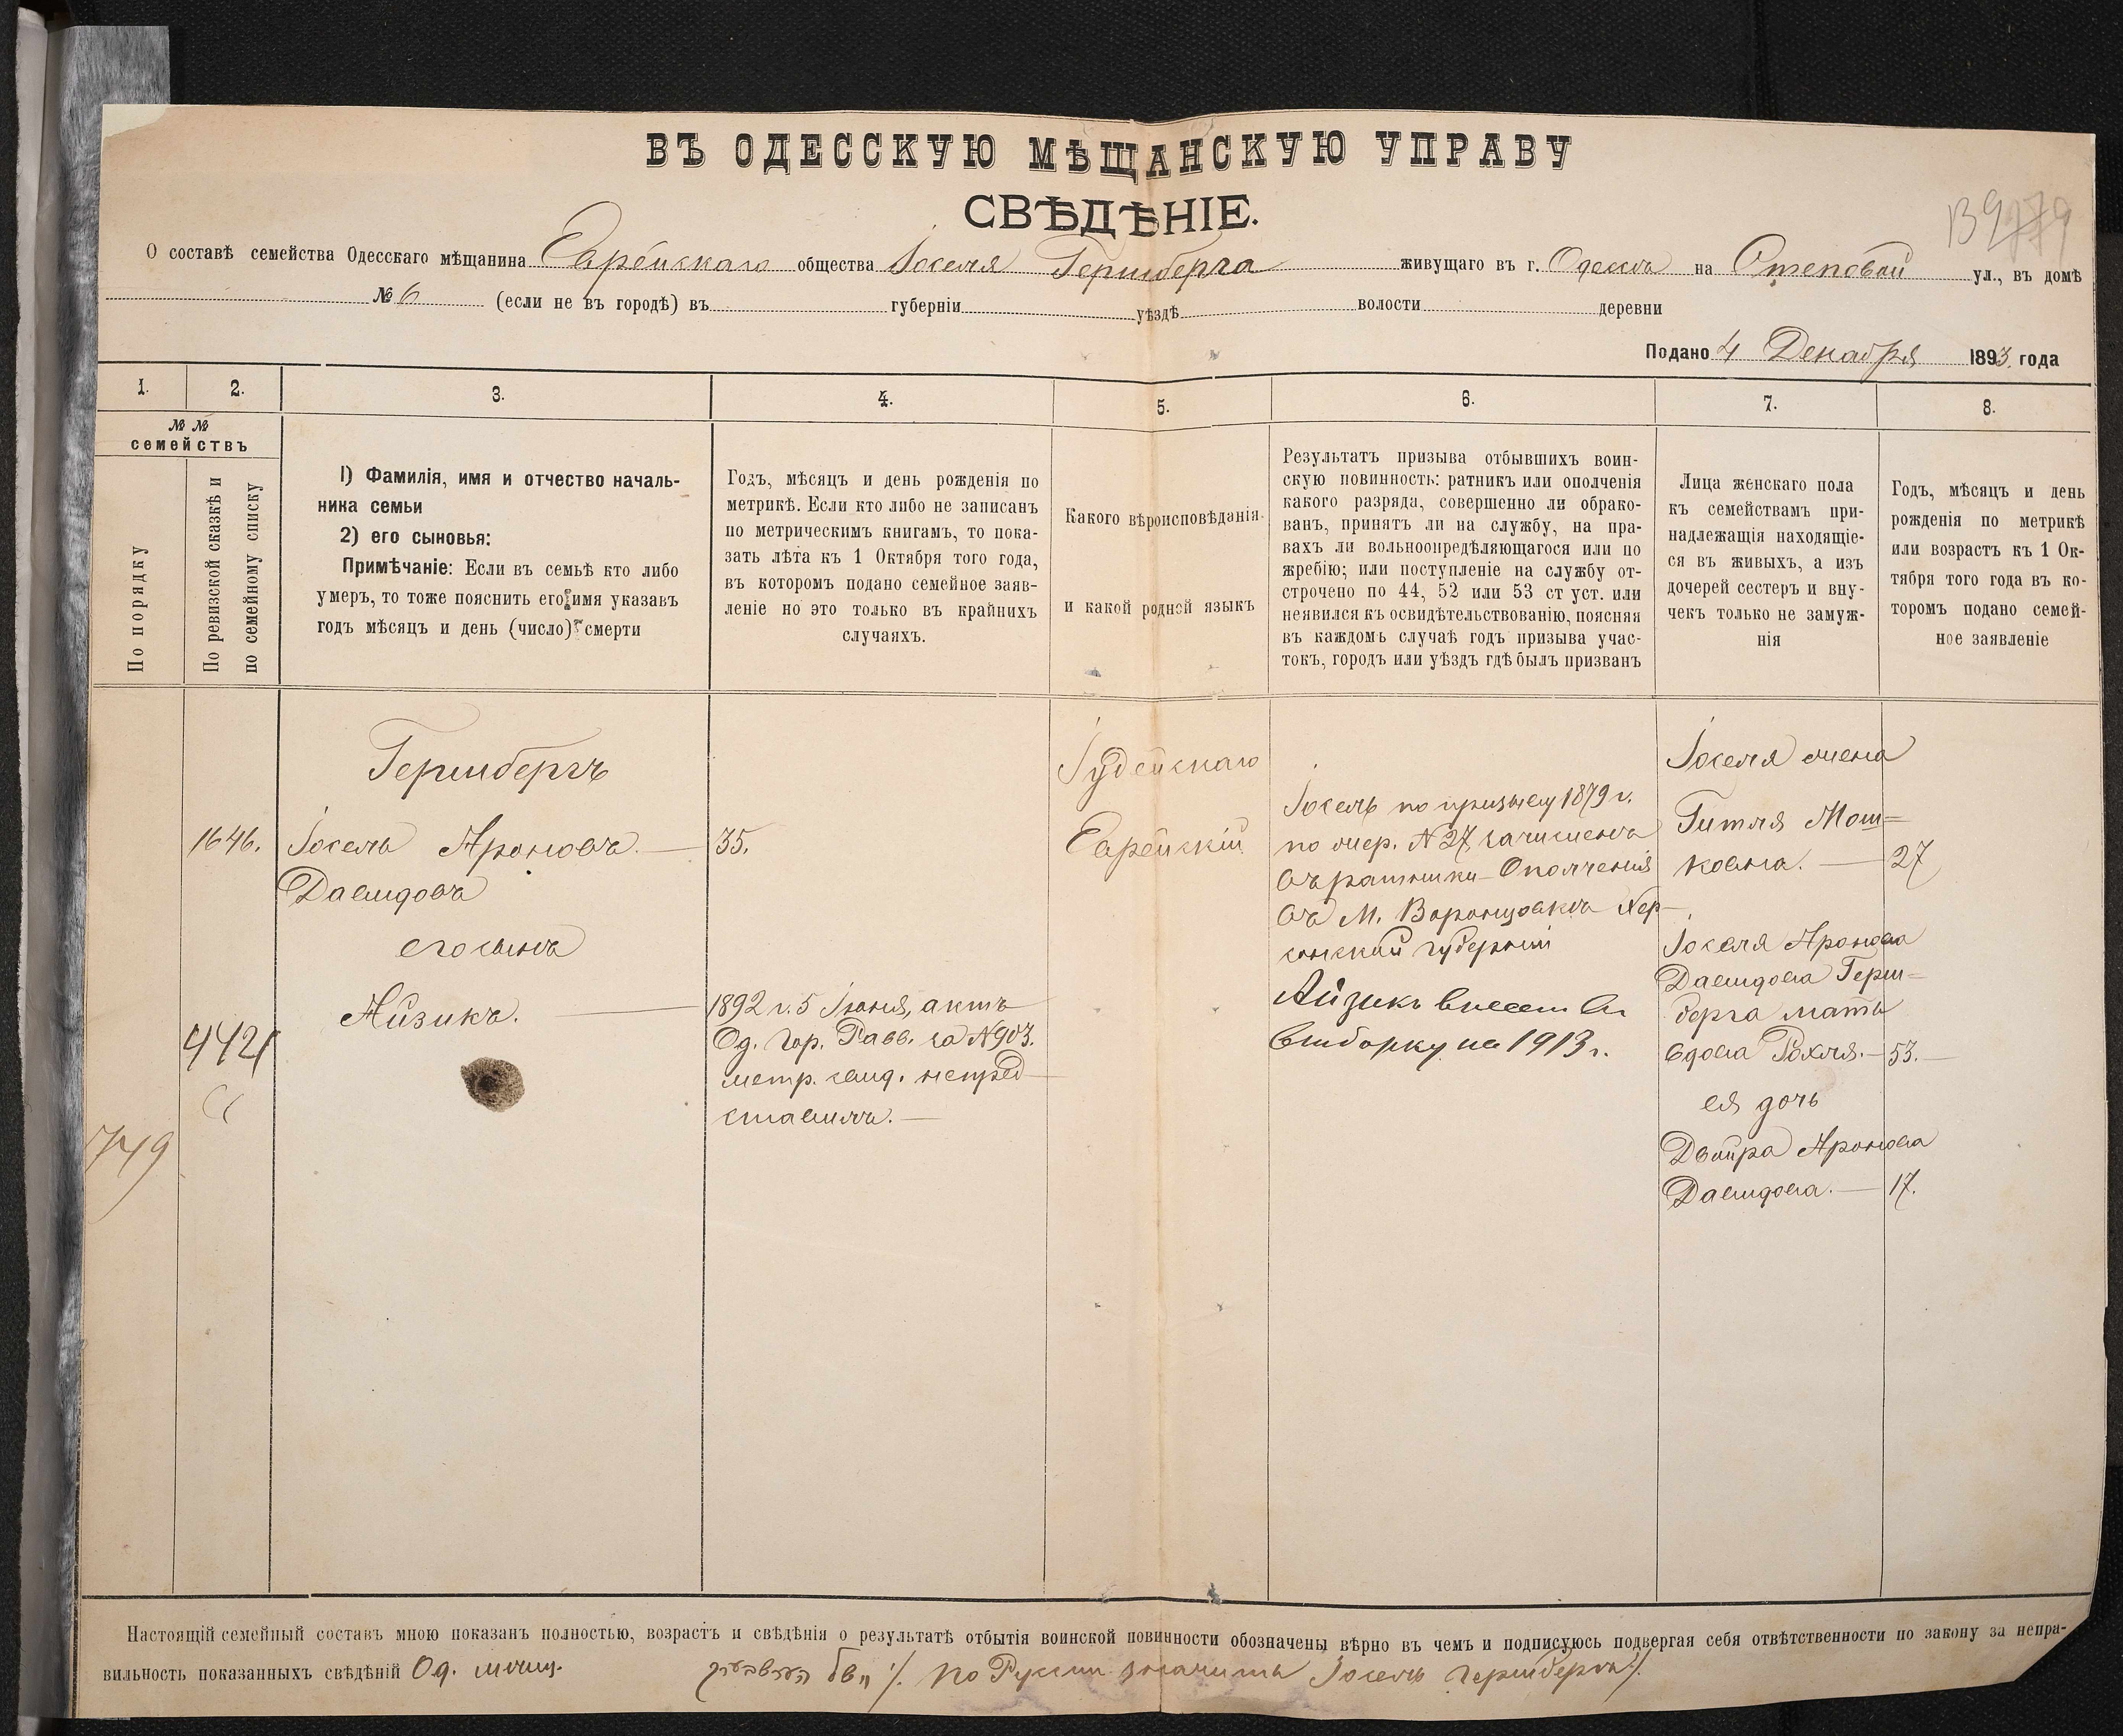 ВЪ ОДЕССКУЮ МѢЩАНСКУЮ УПРАВУ
СВѢДѢНІЕ.
О составѣ семейства Одесскаго мѣщанина Еврейскаго общества Іоселя Гершберга живущаго въ г. Одессѣ на Степовой ул., въ домѣ
№ 6 (если не въ городѣ) въ губерніи уѣздѣ волости деревни
Подано 4 Декабря 1893 года
1. 2. 3. 4. 5. 6. 7. 8.
№ №
семействъ
По порядку
По ревизской сказкѣ и
по семейному списку
1) Фамилія, имя и отчество началь-
ника семьи
2) его сыновья:
Примѣчаніе: Если въ семьѣ кто либо
умеръ, то тоже пояснить его имя указавъ
годъ мѣсяцъ и день (число) смерти
Годъ, мѣсяцъ и день рожденія по
метрикѣ. Если кто либо не записанъ
по метрическимъ книгамъ, то пока-
зать лѣта къ 1 Октября того года,
въ которомъ подано семейное заяв-
леніе но это только въ крайнихъ
случаяхъ.
Какого вѣроисповѣданія
и какой родной языкъ
Результатъ призыва отбывшихъ воин-
скую повинность: ратникъ или ополченія
какого разряда, совершенно ли обрако-
ванъ, принятъ ли на службу, на пра-
вахъ ли вольноопредѣляющагося или по
жребію; или поступленіе на службу от-
строчено по 44, 52 или 53 ст уст. или
неявился къ освидѣтельствованію, поясняя
въ каждомъ случаѣ годъ призыва учас-
токъ, городъ или уѣздъ гдѣ былъ призванъ
Лица женскаго пола
къ семействамъ при-
надлежащія находящіе-
ся въ живыхъ, а изъ
дочерей сестеръ и вну-
чекъ только не замуж-
нія
Годъ, мѣсяцъ и день
рожденія по метрикѣ
или возрастъ къ 1 Ок-
тября того года въ ко-
торомъ подано семей-
ное заявленіе
749
1646.
4421
Гершбергъ
Іосель Ароновъ.
Давидовъ
его сынъ
Айзикъ.
35.
1892 г. 5 Іюня, актъ
Од. Гор. Равв. за № 903.
метр. свид. непред-
ставилъ.
Іудейскаго
Еврейскій
Іосель по призыву 1879 г.
по жер. № 27, зачисленъ
въ ратники Ополченія
въ М. Воронцовкѣ Хер-
сонской губерніи
Айзикъ внесен въ
выборку на 1913 г.
Іоселя жена
Гитля Мош=
ковна. 27
Іоселя Аронова
Давидова Герш=
берга мать
вдова Рохля. 53.
ея дочь
Двойра Аронова
Давидова. 17.
Настоящій семейный составъ мною показанъ полностью, возрастъ и свѣдѣнія о результатѣ отбытія воинской повинности обозначены вѣрно въ чемъ и подписуюсь подвергая себя отвѣтственности по закону за непра-
вильность показанныхъ свѣдѣній Од. мѣщ. ./. по Русски значитъ Іосель Гершбергъ ./.